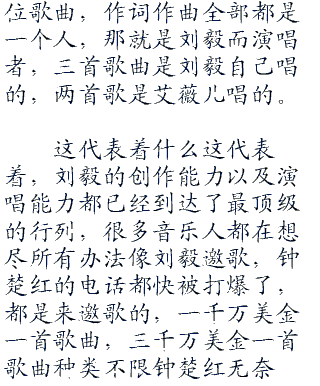 位歌曲，作词作曲全部都是
一个人，那就是刘毅而演唱
者，三首歌曲是刘毅自己唱
的，两首歌是艾薇儿唱的。
这代表着什么这代表
着，刘毅的创作能力以及演
唱能力都已经到达了最顶级
的行列，很多音乐人都在想
尽所有办法像刘毅邀歌，钟
楚红的电话都快被打爆了，
都是来邀歌的，一千万美金
一首歌曲，三千万美金一首
歌曲种类不限钟楚红无奈